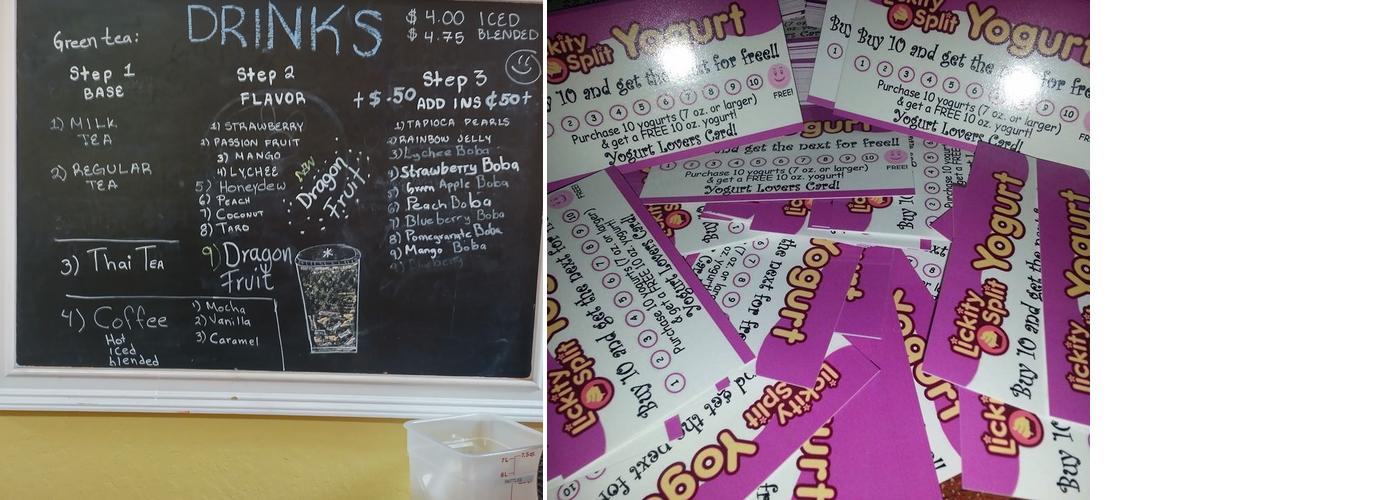 DRINKS
$ 4.00 ICED
$ 4.75 BLENDED
Green tea:
Step 1
BASE
1) MILK
TEA
2) REGULAR
TEA
3) Thai TEA
4) Coffee
Hot
iced
blended
1) Mocha
2) Vanilla
3) Caramel
Step 2
FLAVOR
1) STRAWBERRY
2) PASSION FRUIT
3) MANGO
4) LYCHEE
5) Honeydew
6) PEACH
7) COCONUT
8) TARO
9) Dragon
Fruit
NEW
Dragon
Fruit
Step 3
+$.50 ADD INS ¢50+
1) TAPIOCA PEARLS
2) RAINBOW JELLY
3) Lychee Boba
4) Strawberry Boba
5) Green Apple Boba
6) Peach Boba
7) Blueberry Boba
8) Pomegranate Boba
9) Mango Boba
Lickity
Split Yogurt
Buy 10 and get the next for free!!
1 2 3 4 5 6 7 8 9 10
FREE!
Purchase 10 yogurts (7 oz. or larger)
& get a FREE 10 oz. yogurt!
Yogurt Lovers Card!
Lickity
Split Yogurt
Buy 10 and get the for free
1 2 3 4 5 9 10
Purchase 10 yogurts (7 oz. or larger)
& get a FREE 10 oz. yogurt!
Yogurt Lovers Card!
and get the next for free!!
1 2 3 4 5 6 7 8 9 10
FREE!
Purchase 10 yogurts (7 oz. or larger)
& get a FREE 10 oz. yogurt!
Yogurt Lovers Card!
Lickity
Split
Buy 10 and get the next for
1 2 3 4 5 6 7 8 9 10
FREE!
Purchase 10 yogurts (7 oz. or larger)
& get a FREE 10 oz. yogurt!
Yogurt Lovers Card!
Yogurt
the next for free
Lickity
Split Yogurt
Buy 10 and get the
Lickity
Split
Buy 10
Lickity
Split
Yogurt
get the next for